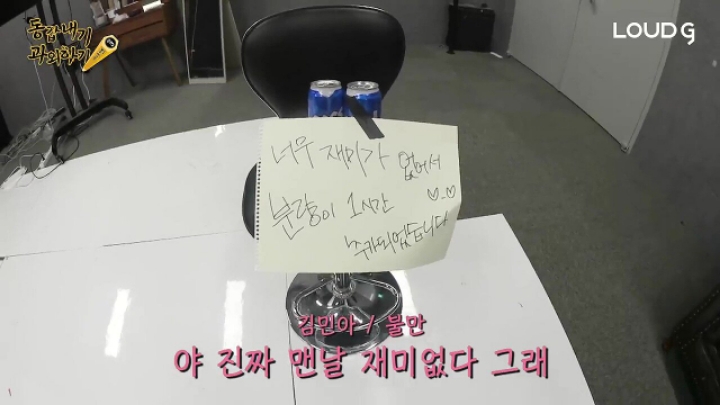 동갑내기
과외하기
LOUD G
너무 재미가 없어서
분량이 1시간 ♡_♡
추가되었습니다
김민아 / 불만
야 진짜 맨날 재미없다 그래